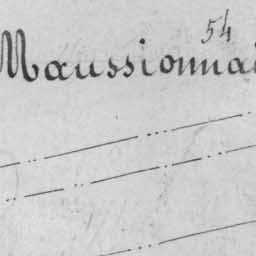 54
Maussionnai